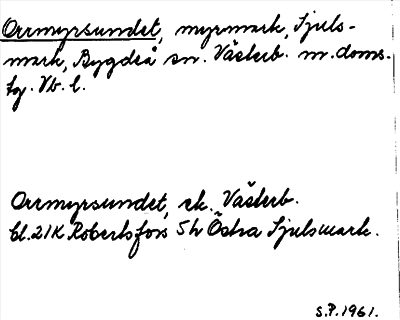 Orrmyrsundet, myrmark, Sjuls-
mark, Bygdeå sn. Västerb. m. doms.
tg. Vb. l.
Orrmyrsundet, ek. Västerb.
bl. 21K Robertsfors 5h Östra Sjulsmark.
S.P. 1961.